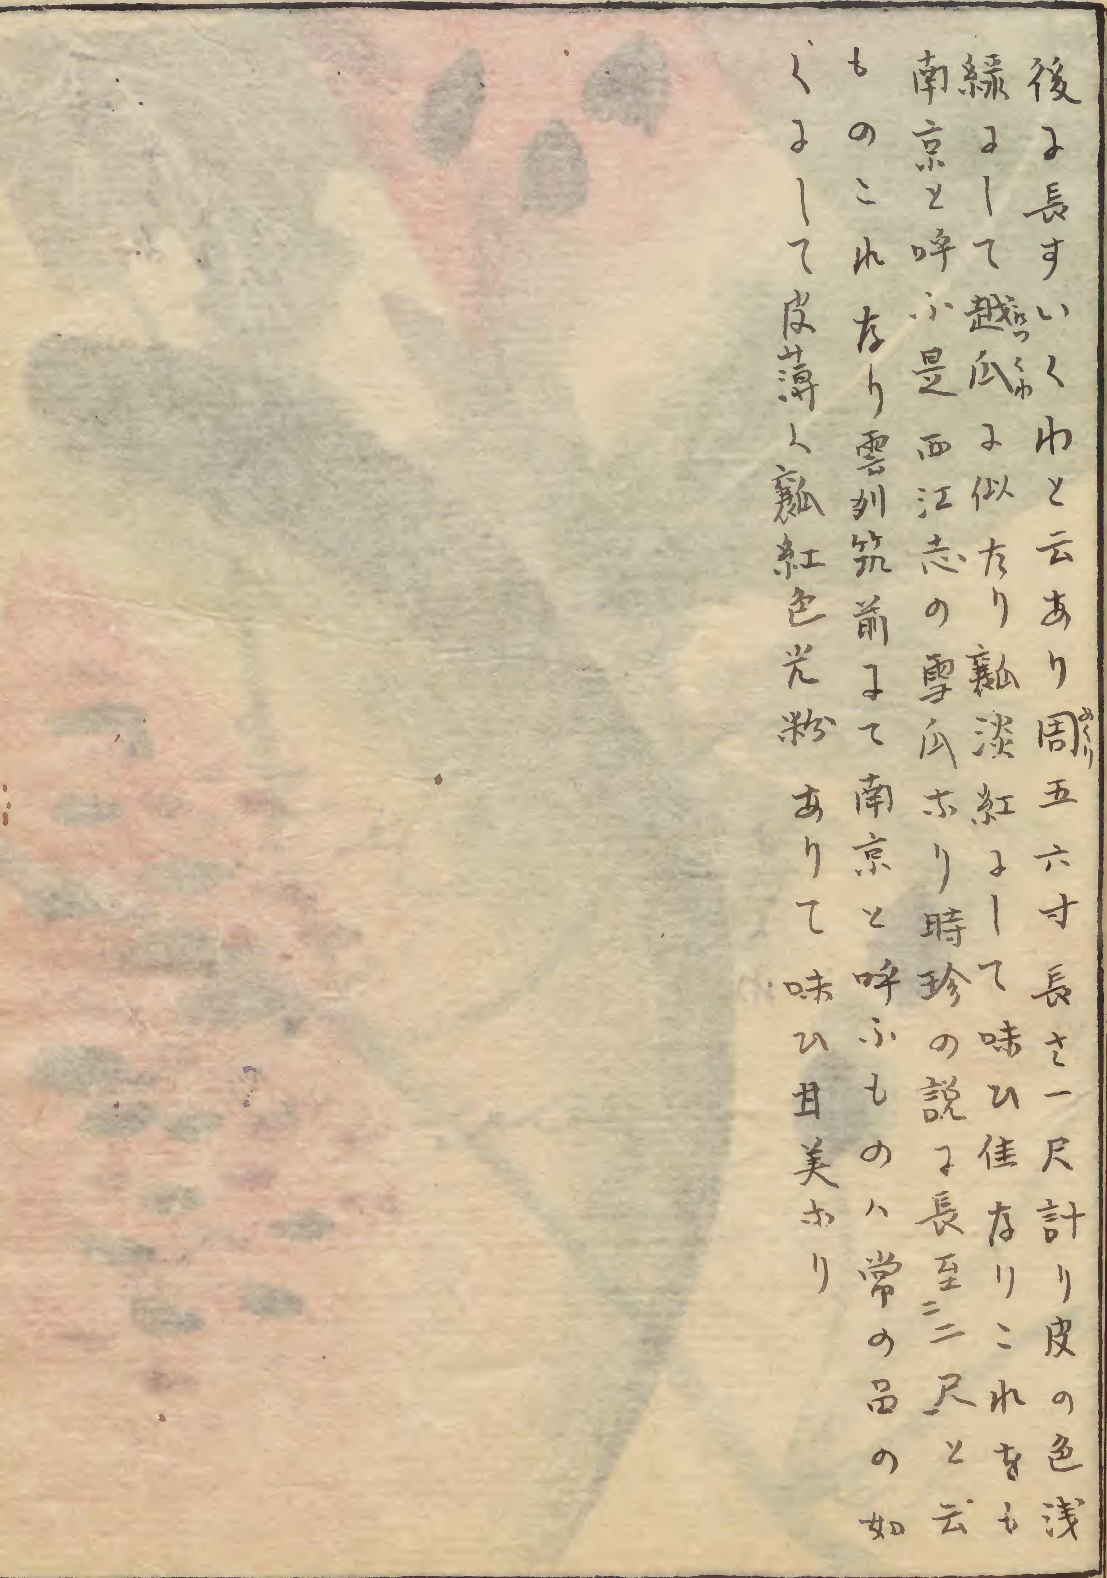 後に長すいくわと云あり周五六寸長さ一尺計り皮の色浅
緑にして越瓜に似たり瓤淡紅にして味ひ佳なりこれをも
南京と呼ふ是西江志の雪瓜なり時珍の説に長至二二尺一と云
ものこれなり雲州筑前にて南京と呼ふものハ常の品の如
くにして皮薄く瓤紅色光粉ありて味ひ甘美なり